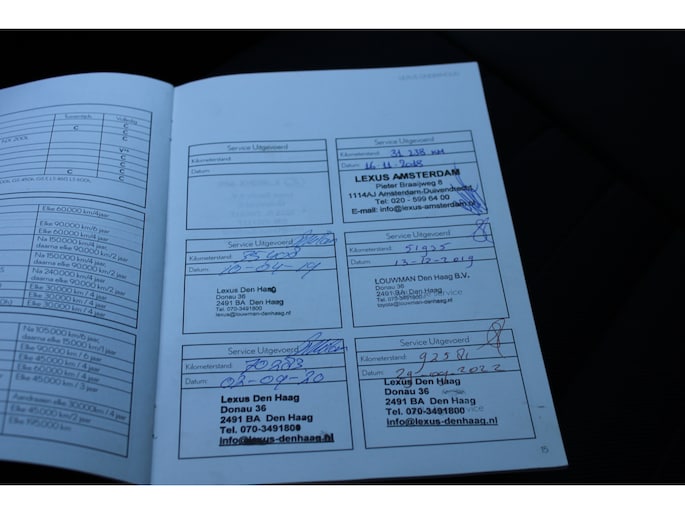 LEXUS ONDERHOUD
Tussentijds
Volledig
C
C
C
C
C
C
C
C
Elke 60.000 km/4jaar
Elke 90.000 km/6 jaar
Elke 60.000 km/4 jaar
Na 150.000 km/4 jaar,
daarna elke 90.000 km/2 jaar
Na 150.000 km/4 jaar,
daarna elke 90.000 km/2 jaar
Na 240.000 km/4 jaar
daarna elke 90.000 km/2 jaar
Elke 30.000 km / 4 jaar
Elke 30.000 km / 4 jaar
Na 105.000 km/6 jaar,
daarna elke 15.000 km/1 jaar
Elke 90.000 km / 6 jaar
Elke 45.000 km / 3 jaar
Elke 45.000 km/2 jaar
Elke 195.000 km
Service Uitgevoerd
Kilometerstand:
Datum:
Service Uitgevoerd
Kilometerstand: 31 238 KM
Datum: 16-11-2018
LEXUS AMSTERDAM
Pieter Braaijweg 8
1114AJ Amsterdam-Duivendrecht
Tel: 020 - 599 64 00
E-mail: info@lexus-amsterdam.nl
Service Uitgevoerd
Kilometerstand:
Datum:
Lexus Den Haag
Donau 36
2491 BA Den Haag
Tel. 070-3491800
lexus@louwman-denhaag.nl
Service Uitgevoerd
Kilometerstand: 51925
Datum: 13-12-2019
LOUWMAN Den Haag B.V.
Donau 36
2491 BA Den Haag
Tel. 070-3491800
toyota@louwman-denhaag.nl
Service Uitgevoerd
Kilometerstand:
Datum: 02-09-20
Lexus Den Haag
Donau 36
2491 BA Den Haag
Tel. 070-3491800
info@lexus-denhaag.nl
Service Uitgevoerd
Kilometerstand:
Datum:
Lexus Den Haag
Donau 36
2491 BA Den Haag
Tel. 070-3491800
info@lexus-denhaag.nl
15